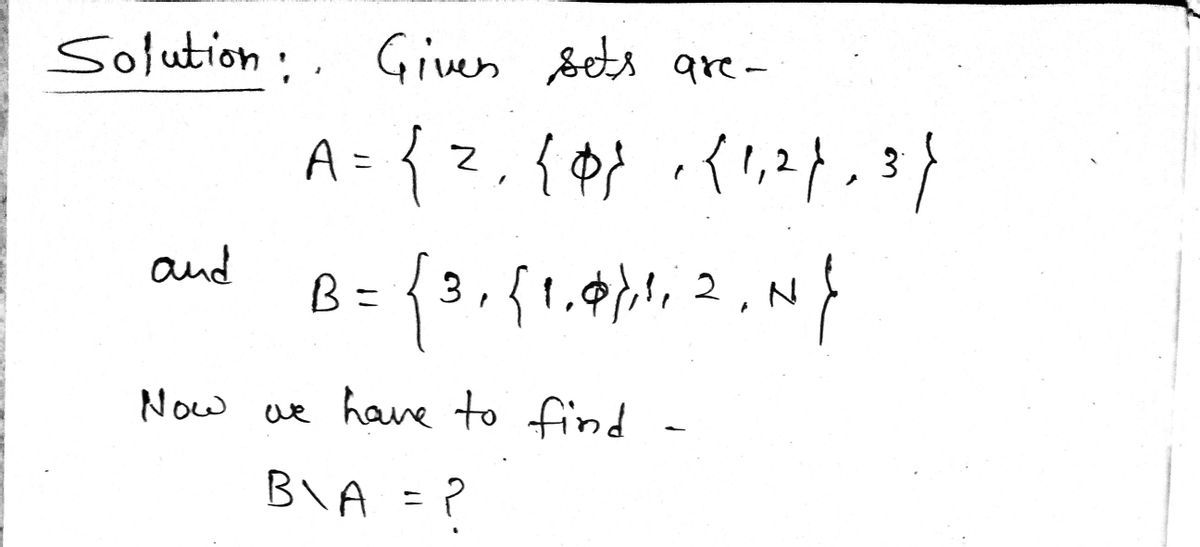 Solution:. Given sets are-
A = { Z, {ϕ} , {1,2}, 3 }
and B = { 3, {1,ϕ},1, 2, N }
Now we have to find -
B\A = ?